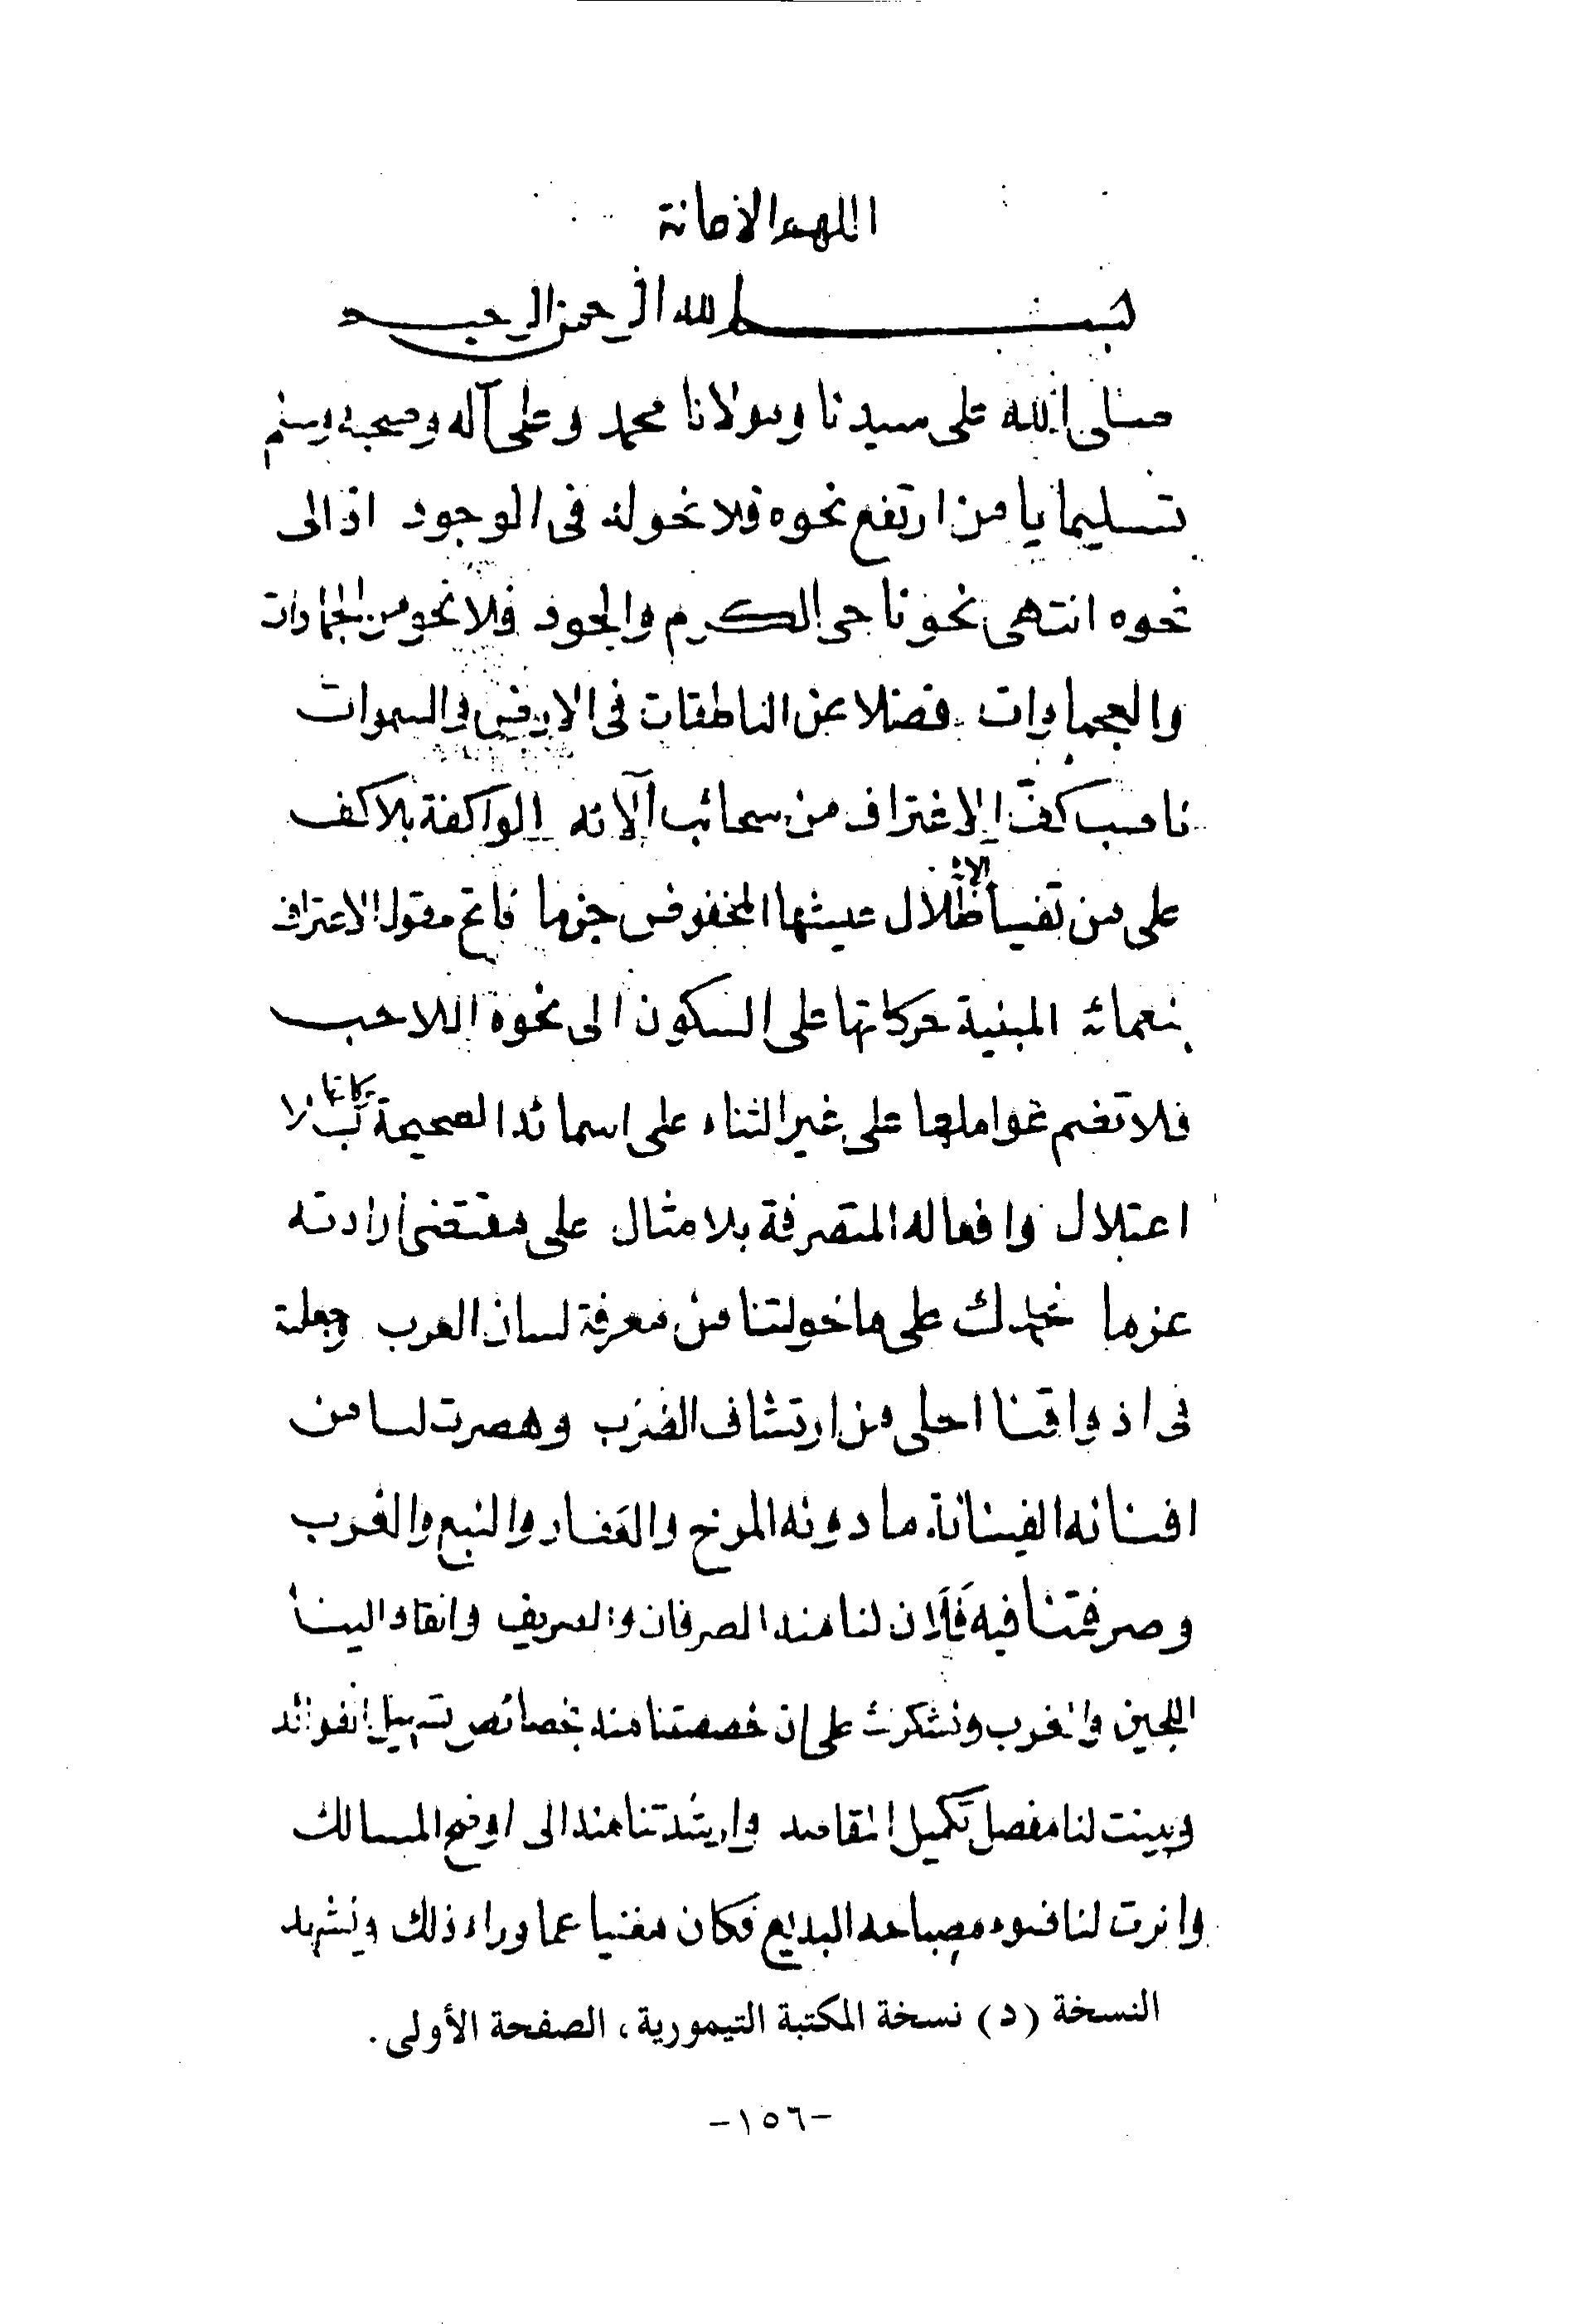 اللهم الاعانة
بسم الله الرحمن الرحيم
صلى الله على سيدنا ومولانا محمد وعلى آله وصحبه وسلم
تسليما يا من ارتفع نحوه فلا نحو له فى الوجود اذ الى
نحوه انتهى نحو ناحى الكرم والجود فلا نحو من الجمادات
والعجماوات فضلا عن الناطقات فى الارض والسموات
ناصب كف الاغتراف من سحائب آلائه الواكفة بلا كف
على من تفيأ ظلال عيشها المخفوض جزما فاتح مقول الاعتراف
بنعمائه المبنية حركاتها على السكون الى نحوه اللاحب
فلا تضم عواملها على غير الثناء على اسمائه الصحيحة بلا
اعتلال وافعاله المتصرفة بلا مثال على مقتضى ارادته
عزما نحمدك على ما خولتنا من معرفة لسان العرب وجعلته
فى اذواقنا احلى من ارتشاف الضرب وهصرت لنا من
افنانه الفينانة ما دونه المرخ والعفار والنبع والغرب
وصرفتنا فيه فَلَان لنا منه الصرفان والصريف وانقاد الينا
اللجين والغرب ونشكرك على ان خصصتنا منه بخصائص تسهيل الفوائد
وبينت لنا مفصل تكميل المقاصد وارشدتنا منه الى اوضح المسالك
وانرت لنا ضوء مصباحه البديع فكان مغنيا عما وراء ذلك ونشهد
النسخة (د) نسخة المكتبة التيمورية، الصفحة الأولى.
-١٥٦-